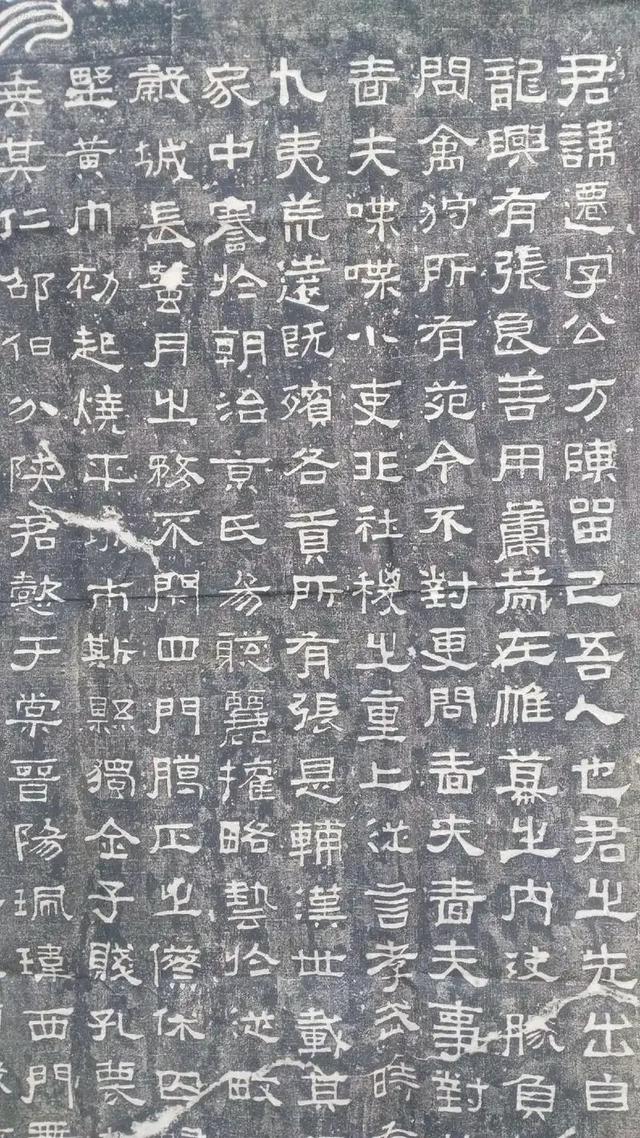 君諱遷字公方陳留己吾人也君之先出自
龍興有張良善用籌策在帷幕之内決勝負
問禽狩所有苑令不對更問嗇夫嗇夫事對
嗇夫喋喋小吏非社稷之重上從言孝武時
九夷荒遠既殯各貢所有張是輔漢世載其
家中謇於朝治京氏易聰麗權略藝於從畋
穀城長蠶月之務不閉四門臘正之僚休囚
堅黃巾初起燒平市斯縣獨全子賤孔蔑
垂其仁邵伯分陝君懿于棠晉陽珮瑋西門